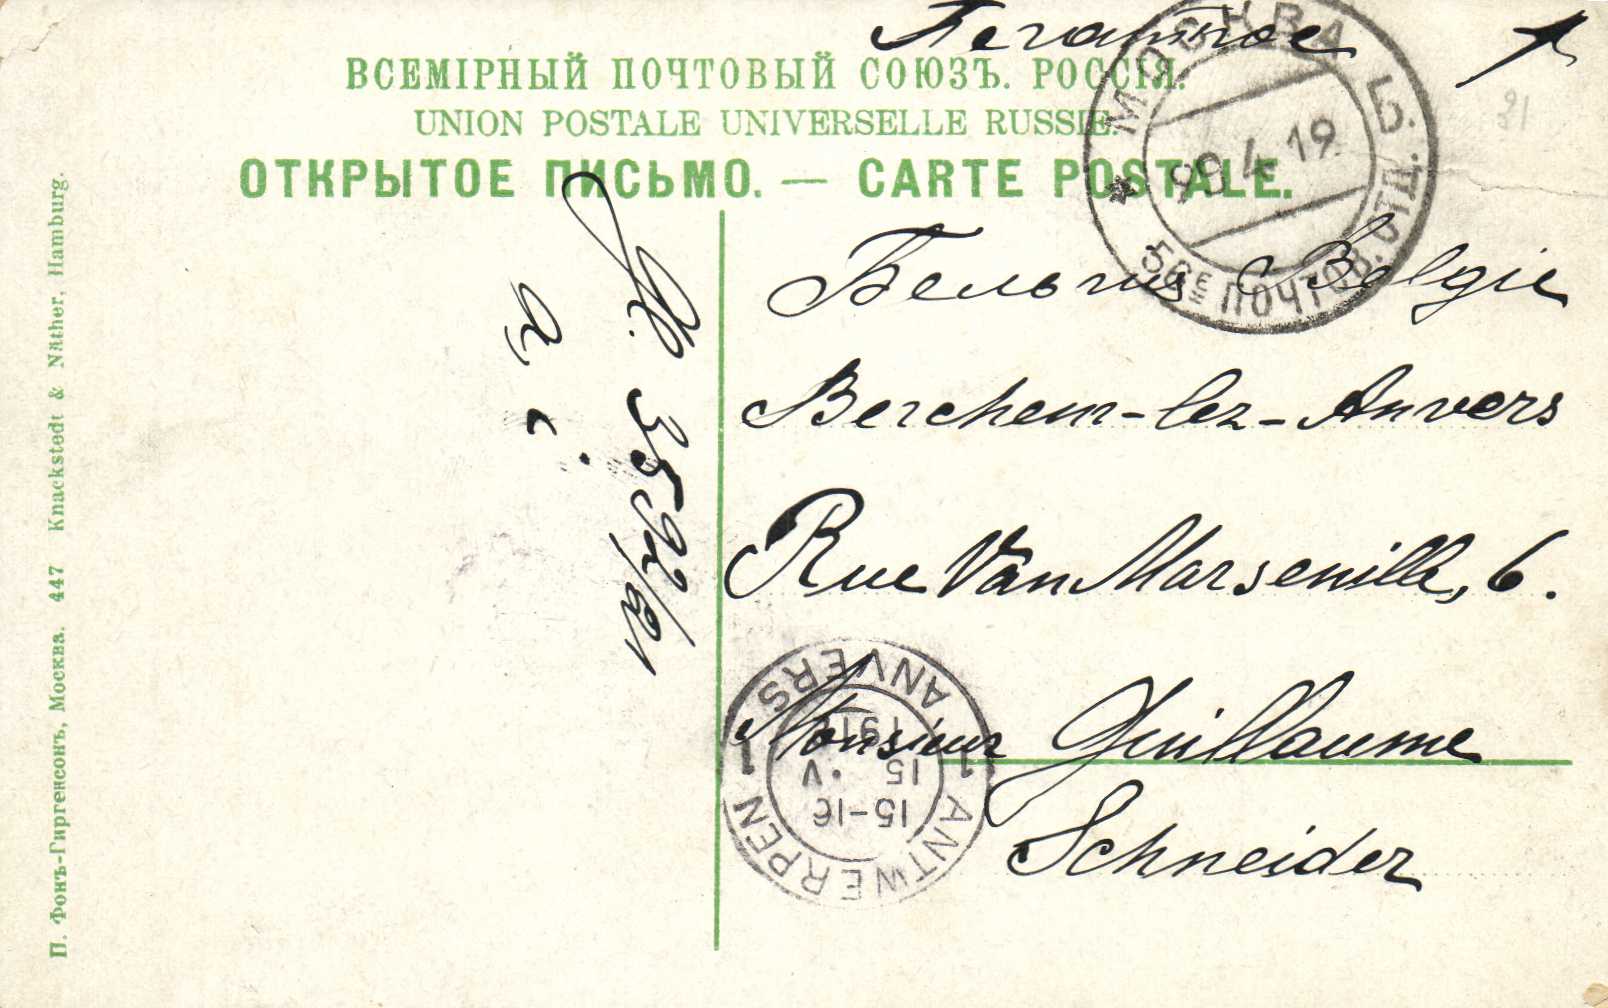 Печатное
ВСЕМІРНЫЙ ПОЧТОВЫЙ СОЮЗЪ. РОССІЯ.
UNION POSTALE UNIVERSELLE RUSSIE.
ОТКРЫТОЕ ПИСЬМО. — CARTE POSTALE.
МОСКВА Б.
29.4.19
56Е ПОЧТОВ. ОТД.
Бельгия Belgie
Berchem-lez-Anvers
Rue Van Marsenille, 6.
Monsieur Guillaume
Schneider
3592/81
a. i.
1 ANTWERPEN 1 ANVERS
15-16
15 V
191
П. Фонъ-Гиргенсонъ, Москва. 447 Knackstedt & Näther, Hamburg.
91